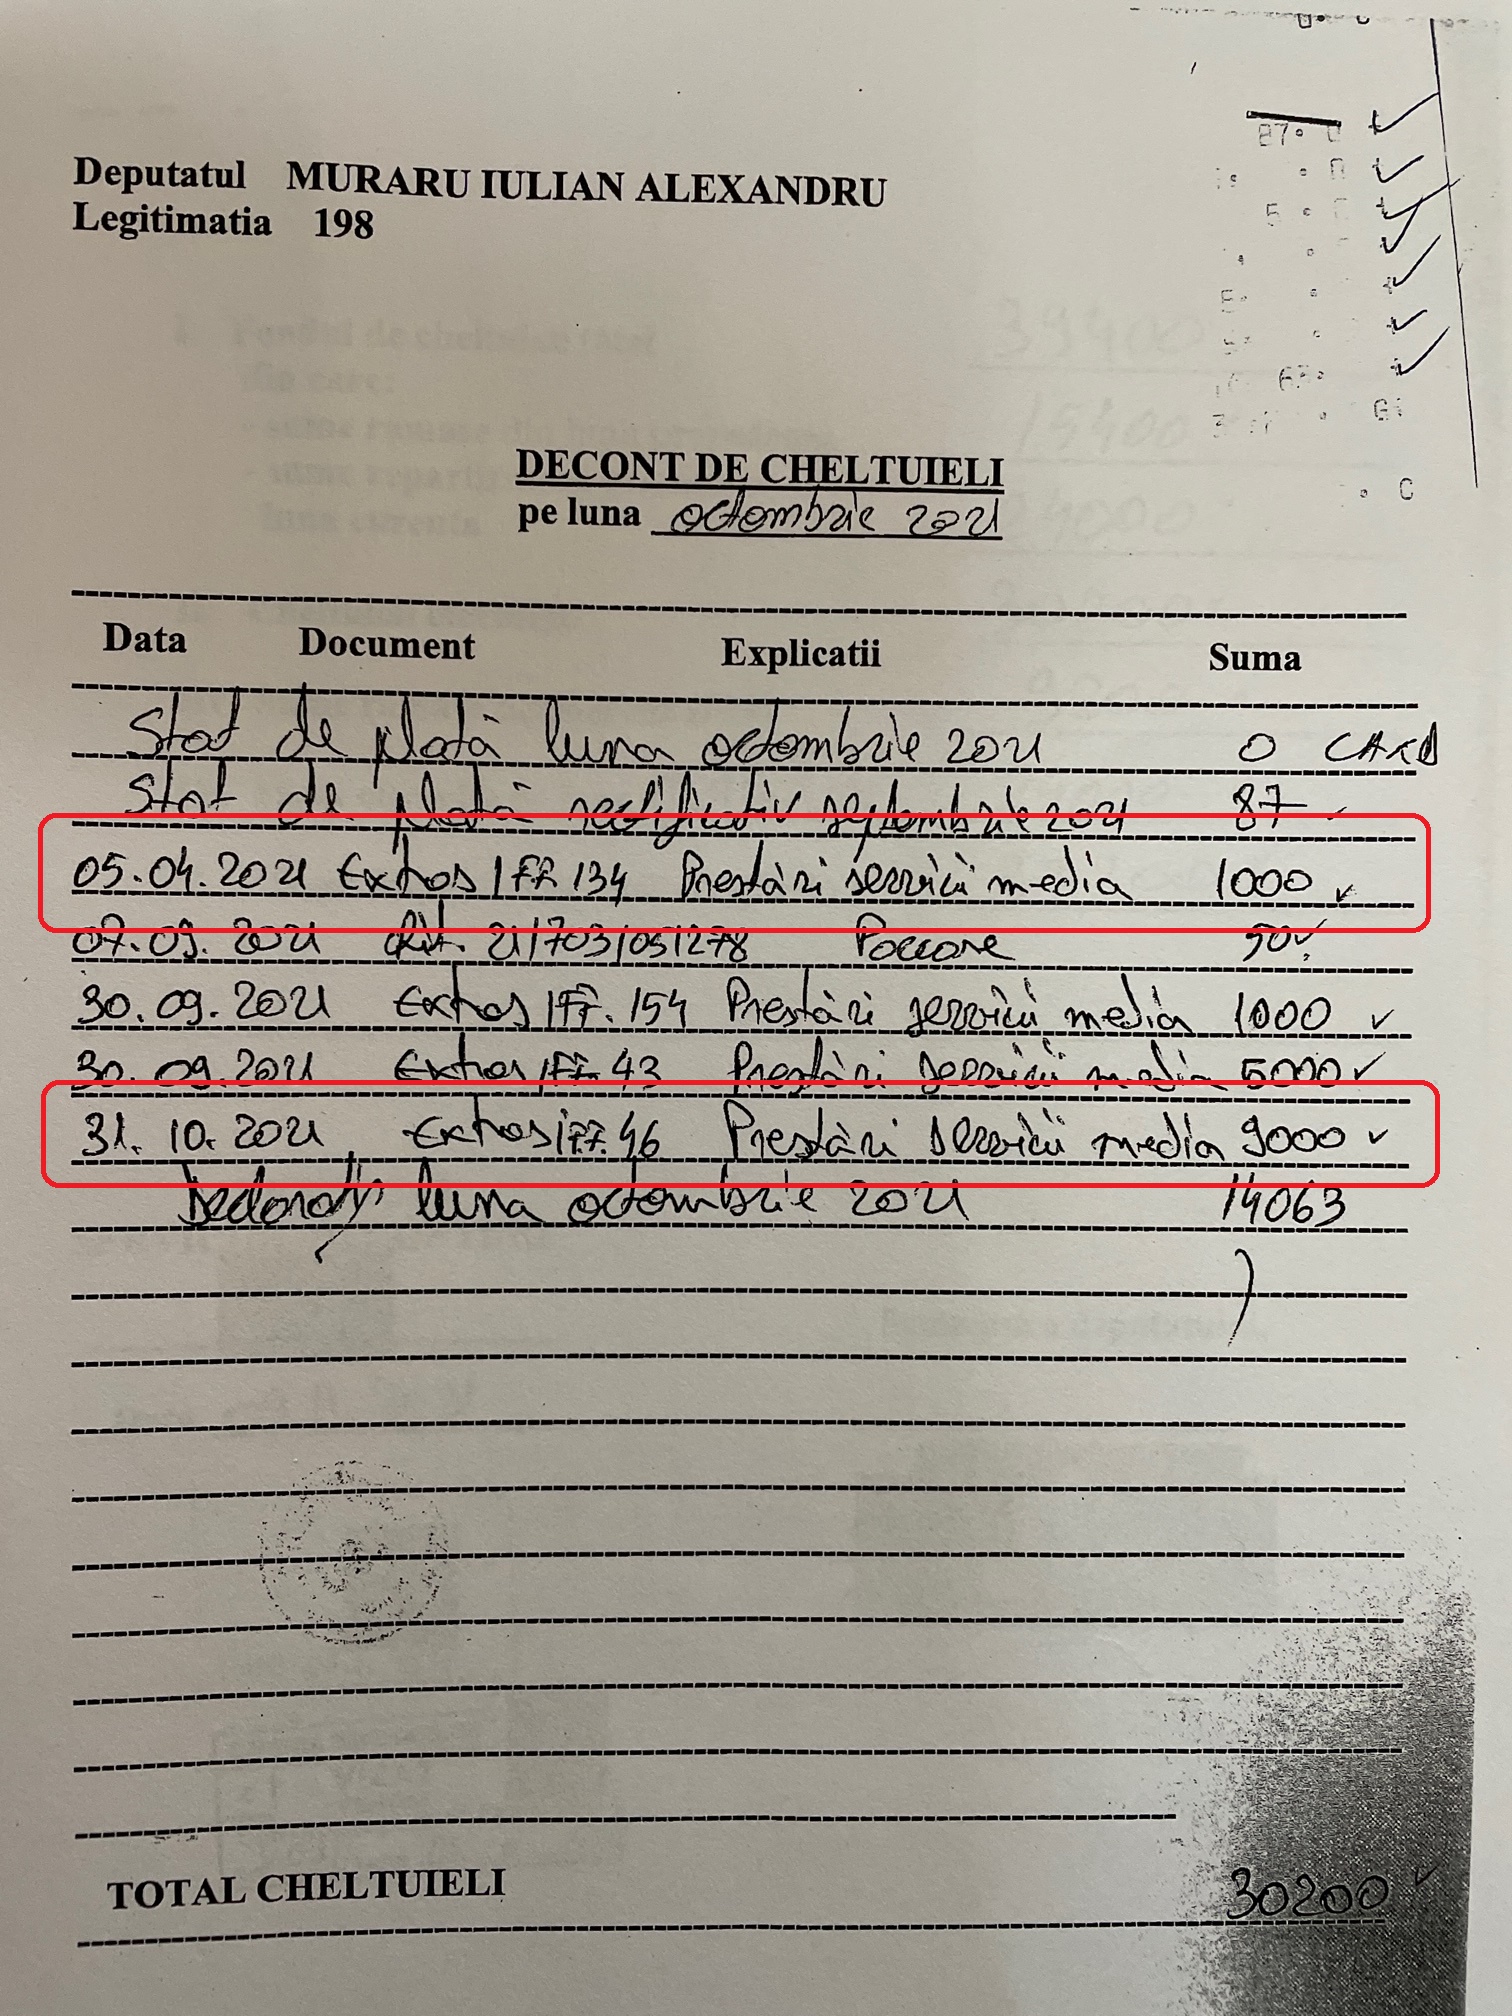 Deputatul MURARU IULIAN ALEXANDRU
Legitimatia 198
DECONT DE CHELTUIELI
pe luna octombrie 2021
Data Document Explicatii Suma
Stat de plată luna octombrie 2021 0 CARD
Stat de plată rectificativ septembrie 2021 87
05.04.2021 Extras / FF 134 Prestări servicii media 1000
07.09.2021 chit. 21/703/051278 50
30.09.2021 Extras / FF. 154 Prestări servicii media 1000
30.09.2021 Extras / FF 43 Prestări servicii media 5000
31.10.2021 Extras / FF. 46 Prestări servicii media 9000
luna octombrie 2021 14063
TOTAL CHELTUIELI 30200